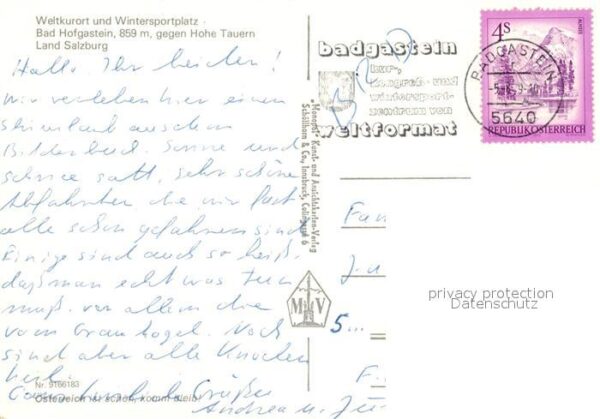 Weltkurort und Wintersportplatz
Bad Hofgastein, 859 m, gegen Hohe Tauern
Land Salzburg
Hallo, Ihr beiden!
Wir verleben hier einen
Skiurlaub aus dem
Bilderbuch. Sonne und
Schnee satt, sehr schöne
Abfahrten die wir fast
alle schon gefahren sind
Einige sind auch so heiß,
daß man echt was tun
muß. vor allem die
vom Graukogel. Noch
sind aber alle Knochen
heil.
Grüße
Andrea u.
Nr. 9166183
Österreich ist schön, komm bleib!
"Monopol"-Kunst- und Ansichtskarten-Verlag
Schöllhorn & Co., Innsbruck, Colingasse 6
M V
badgastein
kur-,
kongreß- und
wintersport-
zentrum von
weltformat
BADGASTEIN
5640
4 S
ALMSEE
REPUBLIK ÖSTERREICH
Fam
5...
privacy protection
Datenschutz